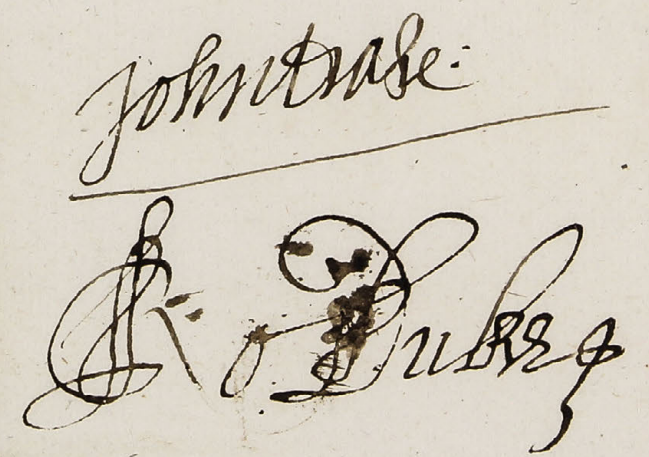 John Drake:
Ro Duke